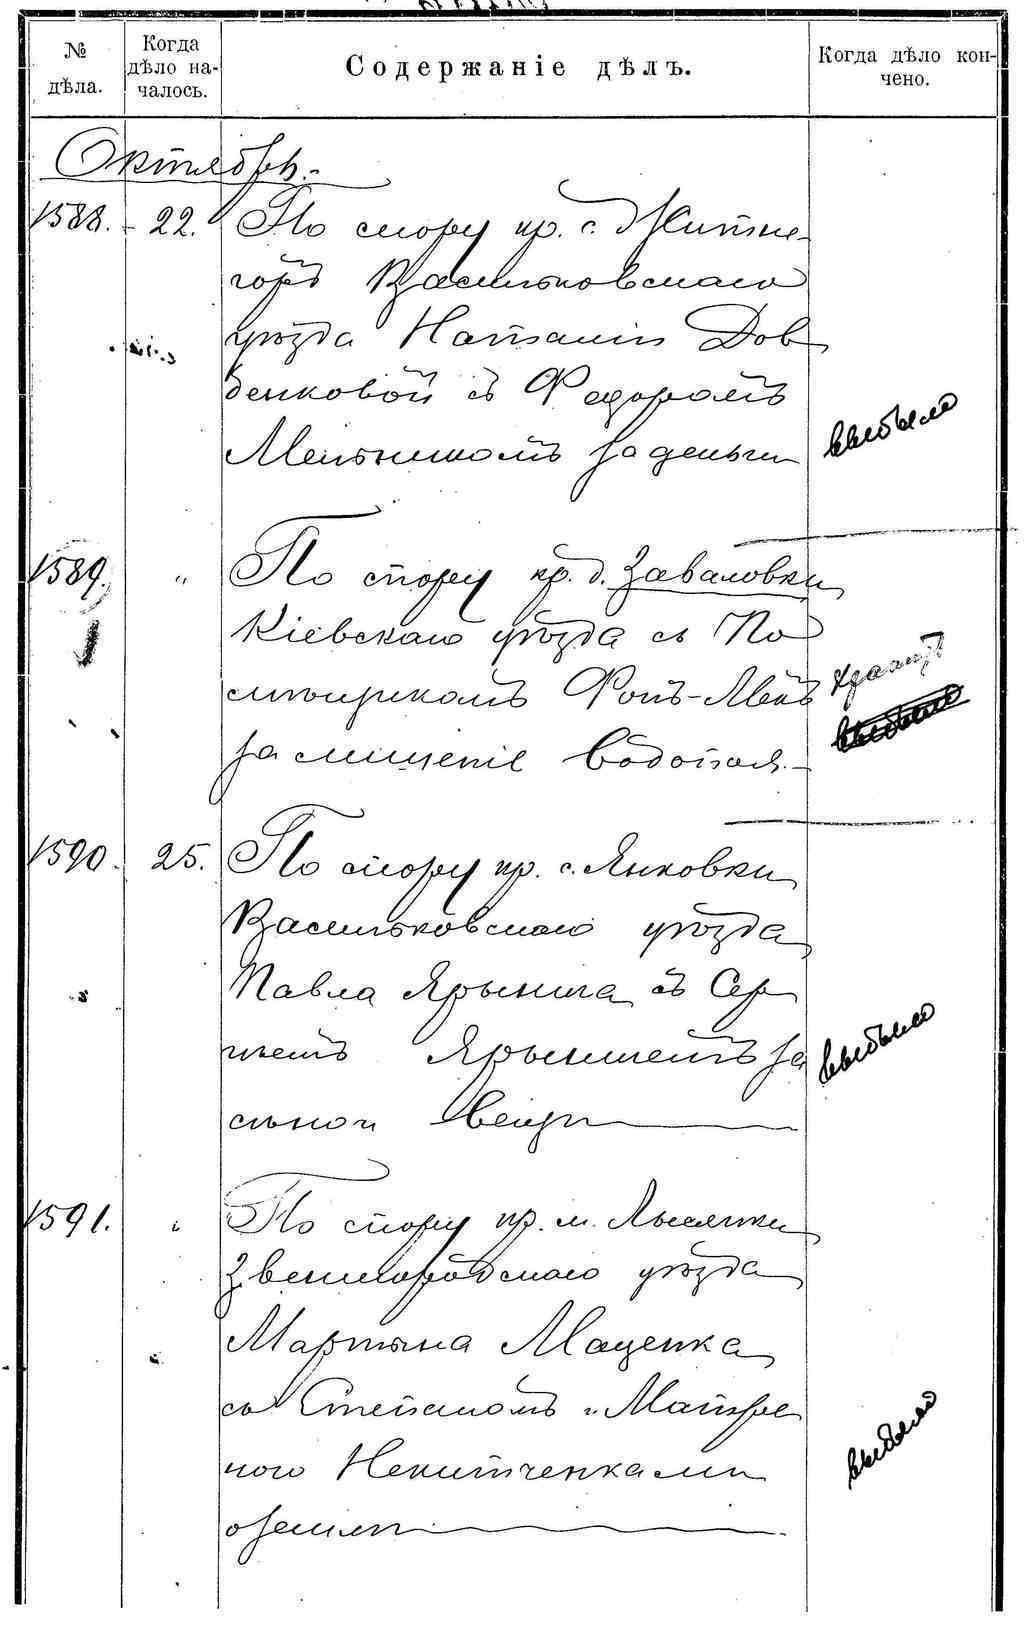 № дѣла.
Когда дѣло началось.
Содержаніе дѣлъ.
Когда дѣло кончено.
Октябрь.
1588. 22. По спору кр. с. Житне-
горъ Васильковскаго
уѣзда Наталіи Дов
денковой съ Федоромъ
Мельникомъ за деньги
выбыло
1589. " По спору кр. д. Заваловки
Кіевскаго уѣзда съ По
мѣщикомъ Фонъ-Мекъ
за лишеніе водопоя.
хранить
выбыло
1590. 25. По спору кр. с. Янковки
Васильковскаго уѣзда
Павла Ярынича съ Сер
гѣемъ Ярыничемъ за
сѣнои вещи
выбыло
1591. " По спору кр. м. Лысянки
Звенигородскаго уѣзда
Мартына Маценка
съ Степаномъ и Матвѣе
Никитченками
о земли
выбыло